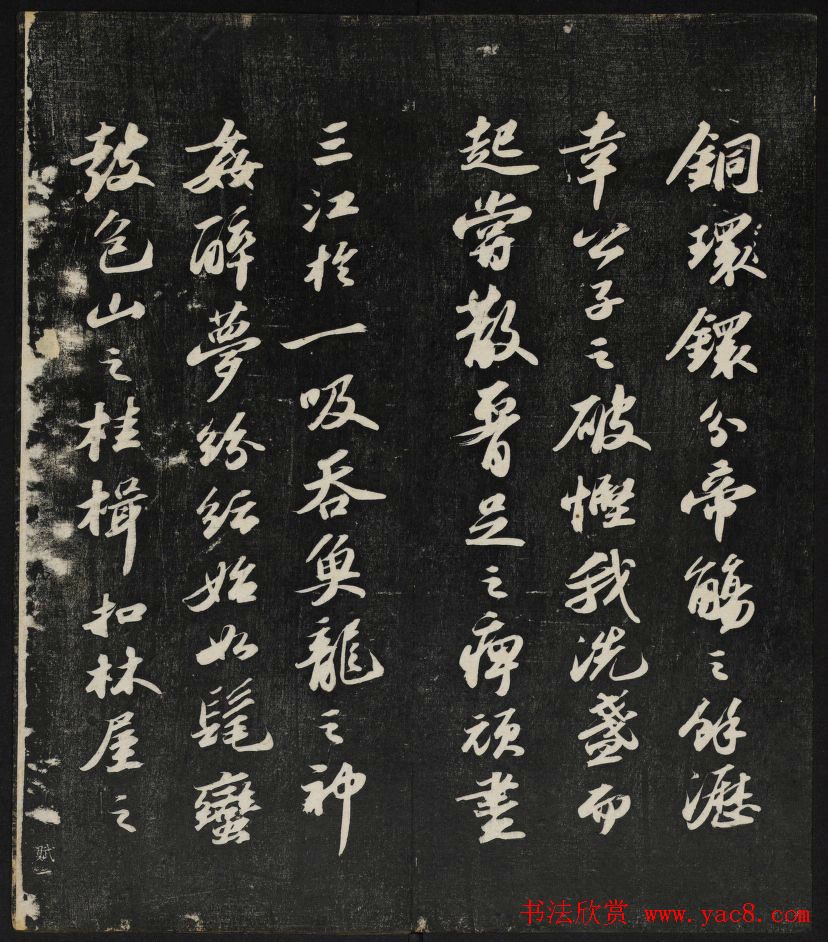 銅環鐶分帝觴之餘瀝
幸公子之破慳我洗盞而
起嘗散腰足之痺頑盡
三江於一吸吞魚龍之神
姦醉夢紛紜始如髦蠻
鼓包山之桂楫扣林屋之
賦一
书法欣赏 www.yac8.com